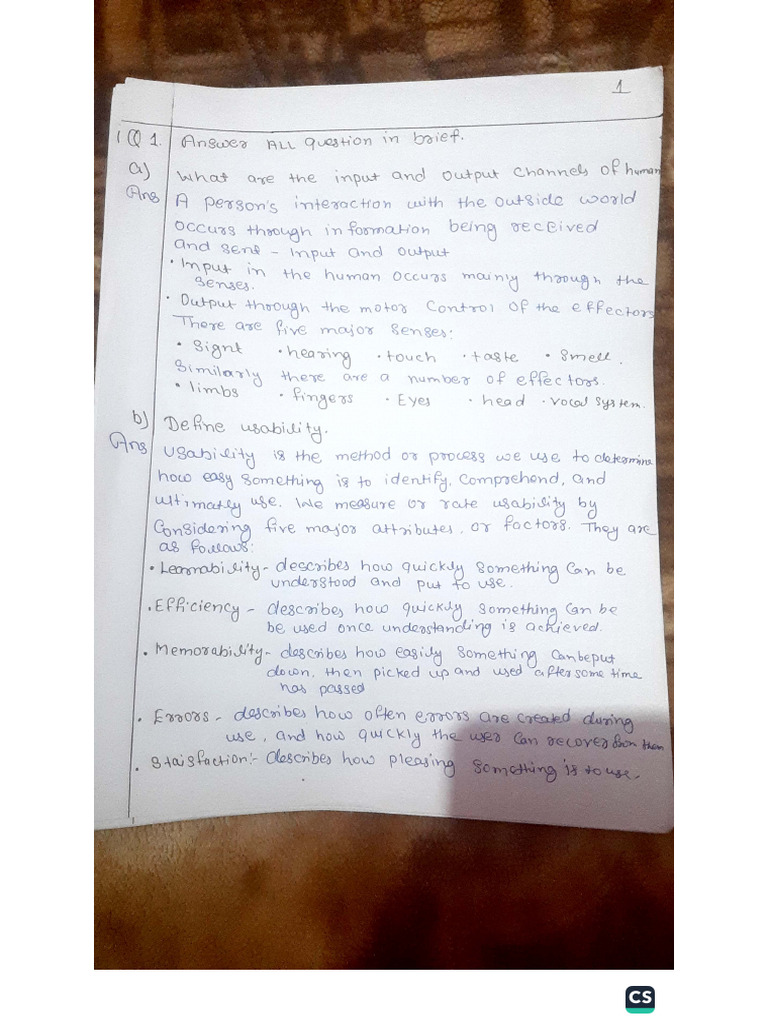 1
1 Q 1. Answer ALL question in brief.
a) What are the input and output channels of human
Ans A person's interaction with the outside world
occurs through information being received
and sent - Input and output
• Input in the human occurs mainly through the
senses.
• Output through the motor control of the effectors
There are five major senses:
• Signt • hearing • touch • taste • smell.
Similarly there are a number of effectors.
• limbs • fingers • Eyes • head • vocal system.
b) Define usability.
Ans Usability is the method or process we use to determine
how easy something is to identify, comprehend, and
ultimatly use. We measure or rate usability by
Considering five major attributes, or factors. They are
as follows:
• Learnability - describes how quickly something can be
understood and put to use.
• Efficiency - describes how quickly something can be
be used once understanding is achieved.
• Memorability - describes how easily something can be put
down, then picked up and used after some time
has passed
• Errors - describes how often errors are created during
use, and how quickly the user can recover from them
• Staisfaction:- describes how pleasing something is to use.
CS